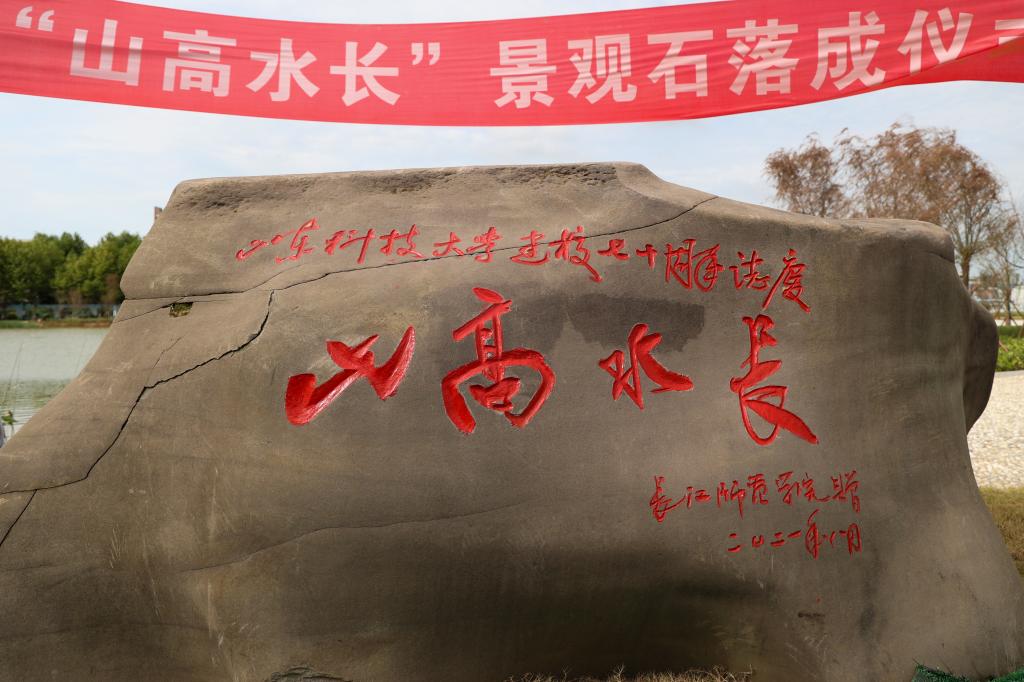 “山高水长”景观石落成仪
山东科技大学建校七十周年志庆
山高水长
长江师范学院赠
二〇二一年八月